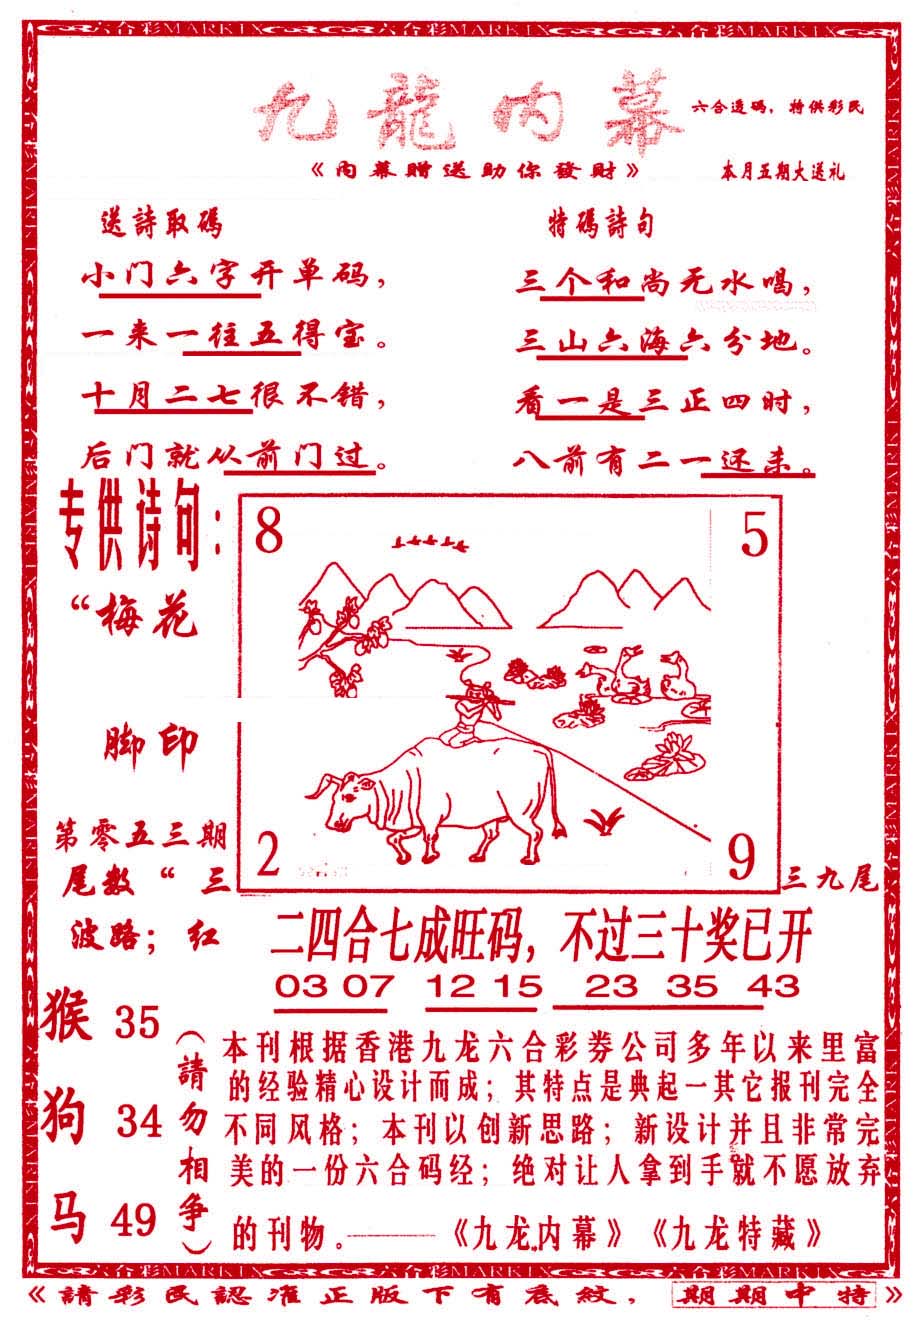 六合彩MARKIX 六合彩MARKIX 六合彩MARKIX
九龍内幕
六合透码，特供彩民
《内幕贈送助你發財》
本月五期大送礼
送詩取碼
小门六字开单码，
一来一往五得宝。
十月二七很不错，
后门就从前门过。
特碼詩句
三个和尚无水喝，
三山六海六分地。
看一是三正四时，
八前有二一还未。
专供诗句：
“梅花
脚印
8
5
2
9
第零五三期
尾数“三
三九尾
波路；红
二四合七成旺码，不过三十奖已开
03 07 12 15 23 35 43
猴 35
狗 34
马 49
（請勿相争）
本刊根据香港九龙六合彩券公司多年以来里富
的经验精心设计而成；其特点是典起一其它报刊完全
不同风格；本刊以创新思路；新设计并且非常完
美的一份六合码经；绝对让人拿到手就不愿放弃
的刊物。——《九龙内幕》《九龙特藏》
六合彩MARKIX 六合彩MARKIX 六合彩MARKIX
《請彩民認准正版下有底紋，期期中特》